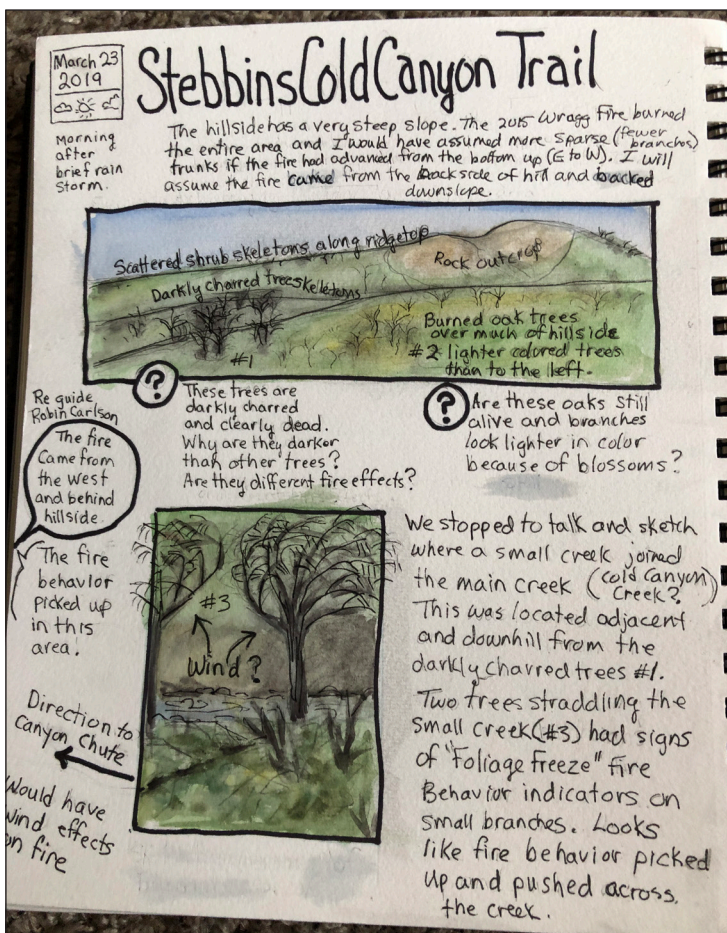 March 23
2019
Stebbins Cold Canyon Trail
Morning
after
brief rain
storm.
The hillside has a very steep slope. The 2015 Wragg Fire burned
the entire area and I would have assumed more sparse (fewer branches)
trunks if the fire had advanced from the bottom up (E to W). I will
assume the fire came from the backside of hill and backed
downslope.
Scattered shrub skeletons along ridgetop
Rock outcrop
Darkly charred tree skeletons
#1
Burned oak trees
over much of hillside
#2 lighter colored trees
than to the left.
?
These trees are
darkly charred
and clearly dead.
Why are they darker
than other trees?
Are they different fire effects?
?
Are these oaks still
alive and branches
look lighter in color
because of blossoms?
Re guide
Robin Carlson
The fire
came from
the west
and behind
hillside.
The fire
behavior
picked up
in this
area!
#3
Wind?
Direction to
Canyon Chute
Would have
wind effects
on fire
We stopped to talk and sketch
where a small creek joined
the main creek (Cold Canyon Creek?)
This was located adjacent
and downhill from the
darkly charred trees #1.
Two trees straddling the
small creek (#3) had signs
of "Foliage Freeze" fire
Behavior indicators on
small branches. Looks
like fire behavior picked
up and pushed across
the creek.